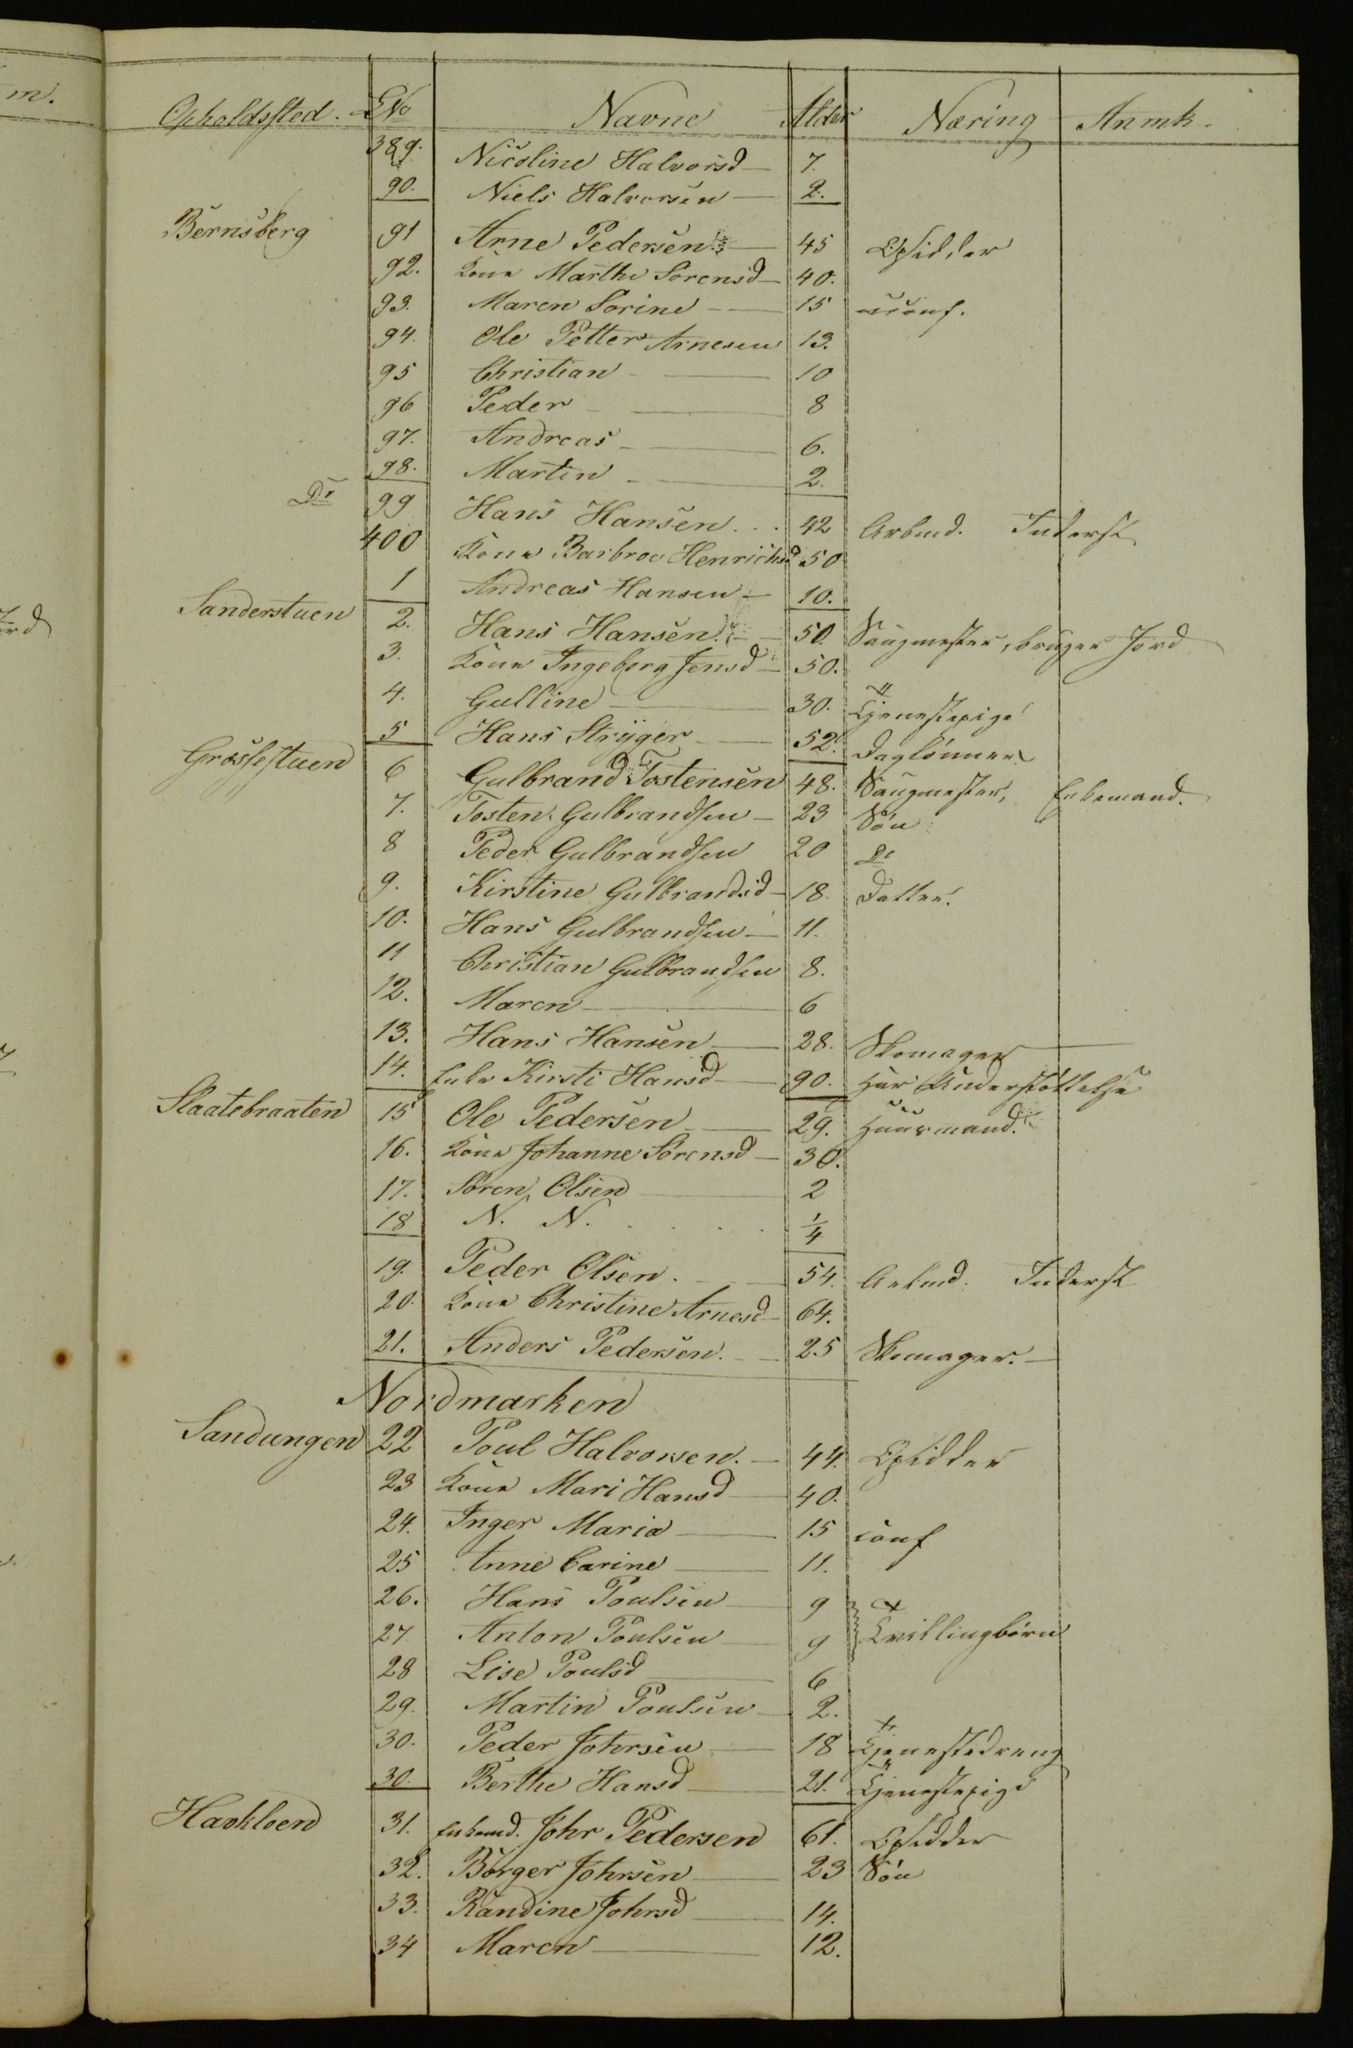 m.
Opholdssted. LNo Navne Alder Næring Anmk.
389. Nicoline Halvorsd 7.
90. Niels Halvorsen 2.
Bernsberg 91 Arne Pedersen 45 Opsidder
92. Kone Marthe Sørensd 40.
93. Maren Sorine 15 conf.
94. Ole Petter Arnesen 13.
95 Christian 10
96 Peder 8
97. Andreas 6.
98. Martin 2.
Do 99 Hans Hansen 42 Arbmd. Inderst
400 Kone Barbroe Henrichsd 50
1 Andreas Hansen 10.
Sanderstuen 2. Hans Hansen 50. Saugmester, bruger Jord
3. Kone Ingeborg Jensd 50.
4. Gulline 30. Tjenestepige
5 Hans Stryger 52. Daglønner
Grøssestuen 6 Gulbrand Tostensen 48. Saugmester, Enkemand.
7. Tosten Gulbrandsen 23 Søn
8 Peder Gulbrandsen 20 Do
9. Kirstine Gulbrandsd 18. Datter
10. Hans Gulbrandsen 11.
11 Christian Gulbrandsen 8.
12. Maren 6
13. Hans Hansen 28. Skomager
14. Enke Kirsti Hansd 90. Har Understøttelse
Slaatebraaten 15 Ole Pedersen 29. Huusmand.
16. Kone Johanne Sørensd 30.
17. Søren Olsen 2
18 N. N. 1/4
19. Peder Olsen 54. Arbmd. Inderst
20. Kone Christine Arnesd 64.
21. Anders Pedersen 25 Skomager.
Nordmarken
Sandungen 22 Poul Halvorsen 44. Opsidder
23 Kone Mari Hansd 40.
24. Inger Maria 15 conf
25 Anne Carine 11.
26. Hans Poulsen 9
27. Anton Poulsen 9 Tvillingbørn
28 Lise Poulsd 6
29. Martin Poulsen 2.
30. Peder Johrsen 18 Tjenestedreng
30. Berthe Hansd 21. Tjenestepige
Hakloen 31. Enkemd. Johr Pedersen 61. Opsidder
32. Børger Johrsen 23 Søn
33. Randine Johrsd 14.
34 Maren 12.